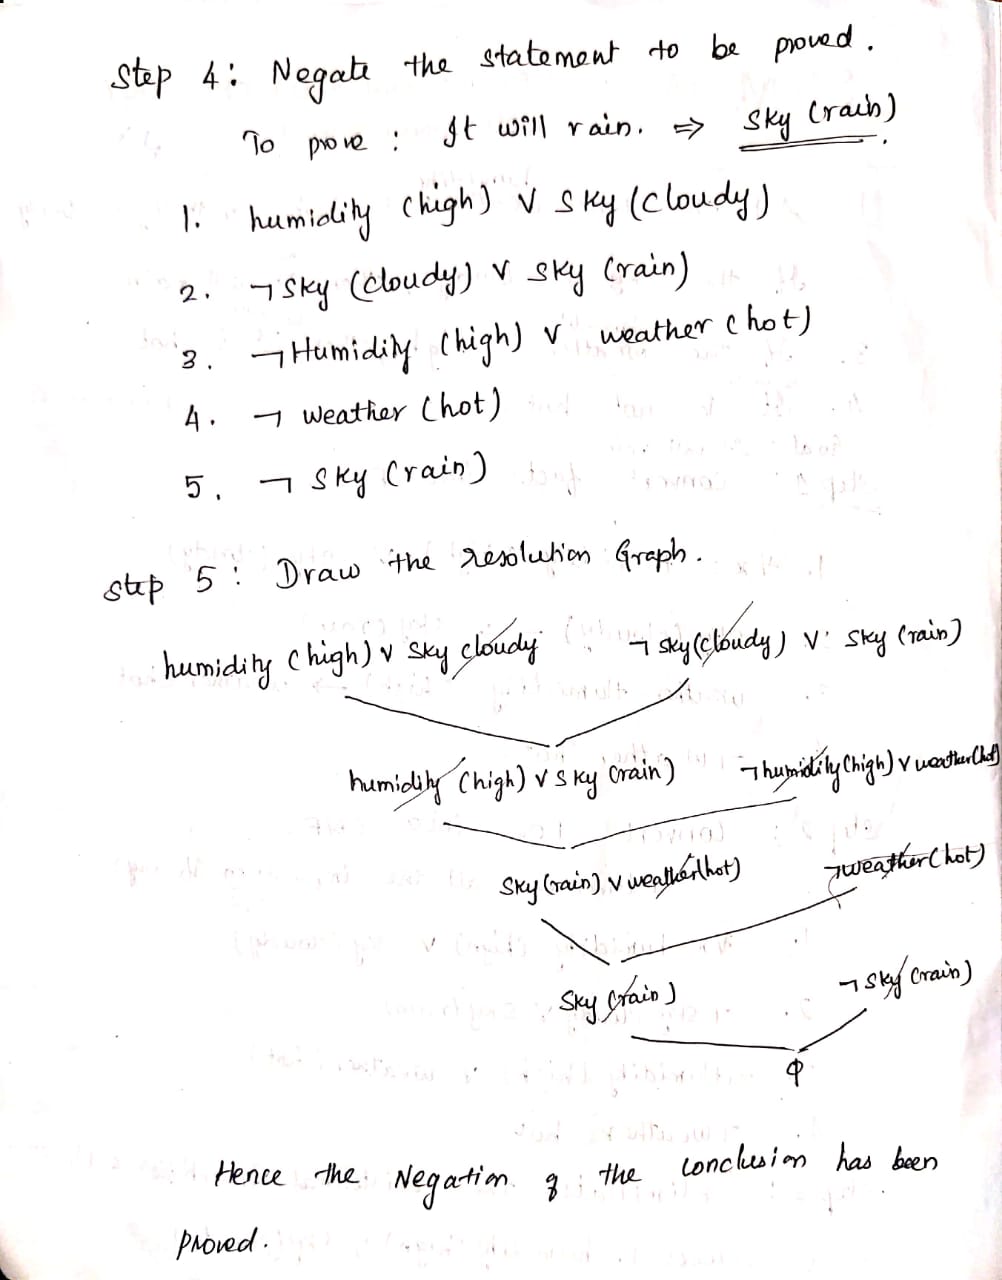 Step 4: Negate the statement to be proved.
To prove : It will rain. ⇒ Sky (rain).
1. humidity (high) ∨ Sky (cloudy)
2. ¬ Sky (cloudy) ∨ Sky (rain)
3. ¬ Humidity (high) ∨ weather (hot)
4. ¬ weather (hot)
5. ¬ Sky (rain)
Step 5: Draw the resolution Graph.
humidity (high) ∨ Sky cloudy ¬ Sky (cloudy) ∨ Sky (rain)
humidity (high) ∨ Sky (rain) ¬ humidity (high) ∨ weather (hot)
Sky (rain) ∨ weather (hot) ¬ weather (hot)
Sky (rain) ¬ Sky (rain)
φ
Hence the Negation of the conclusion has been
proved.